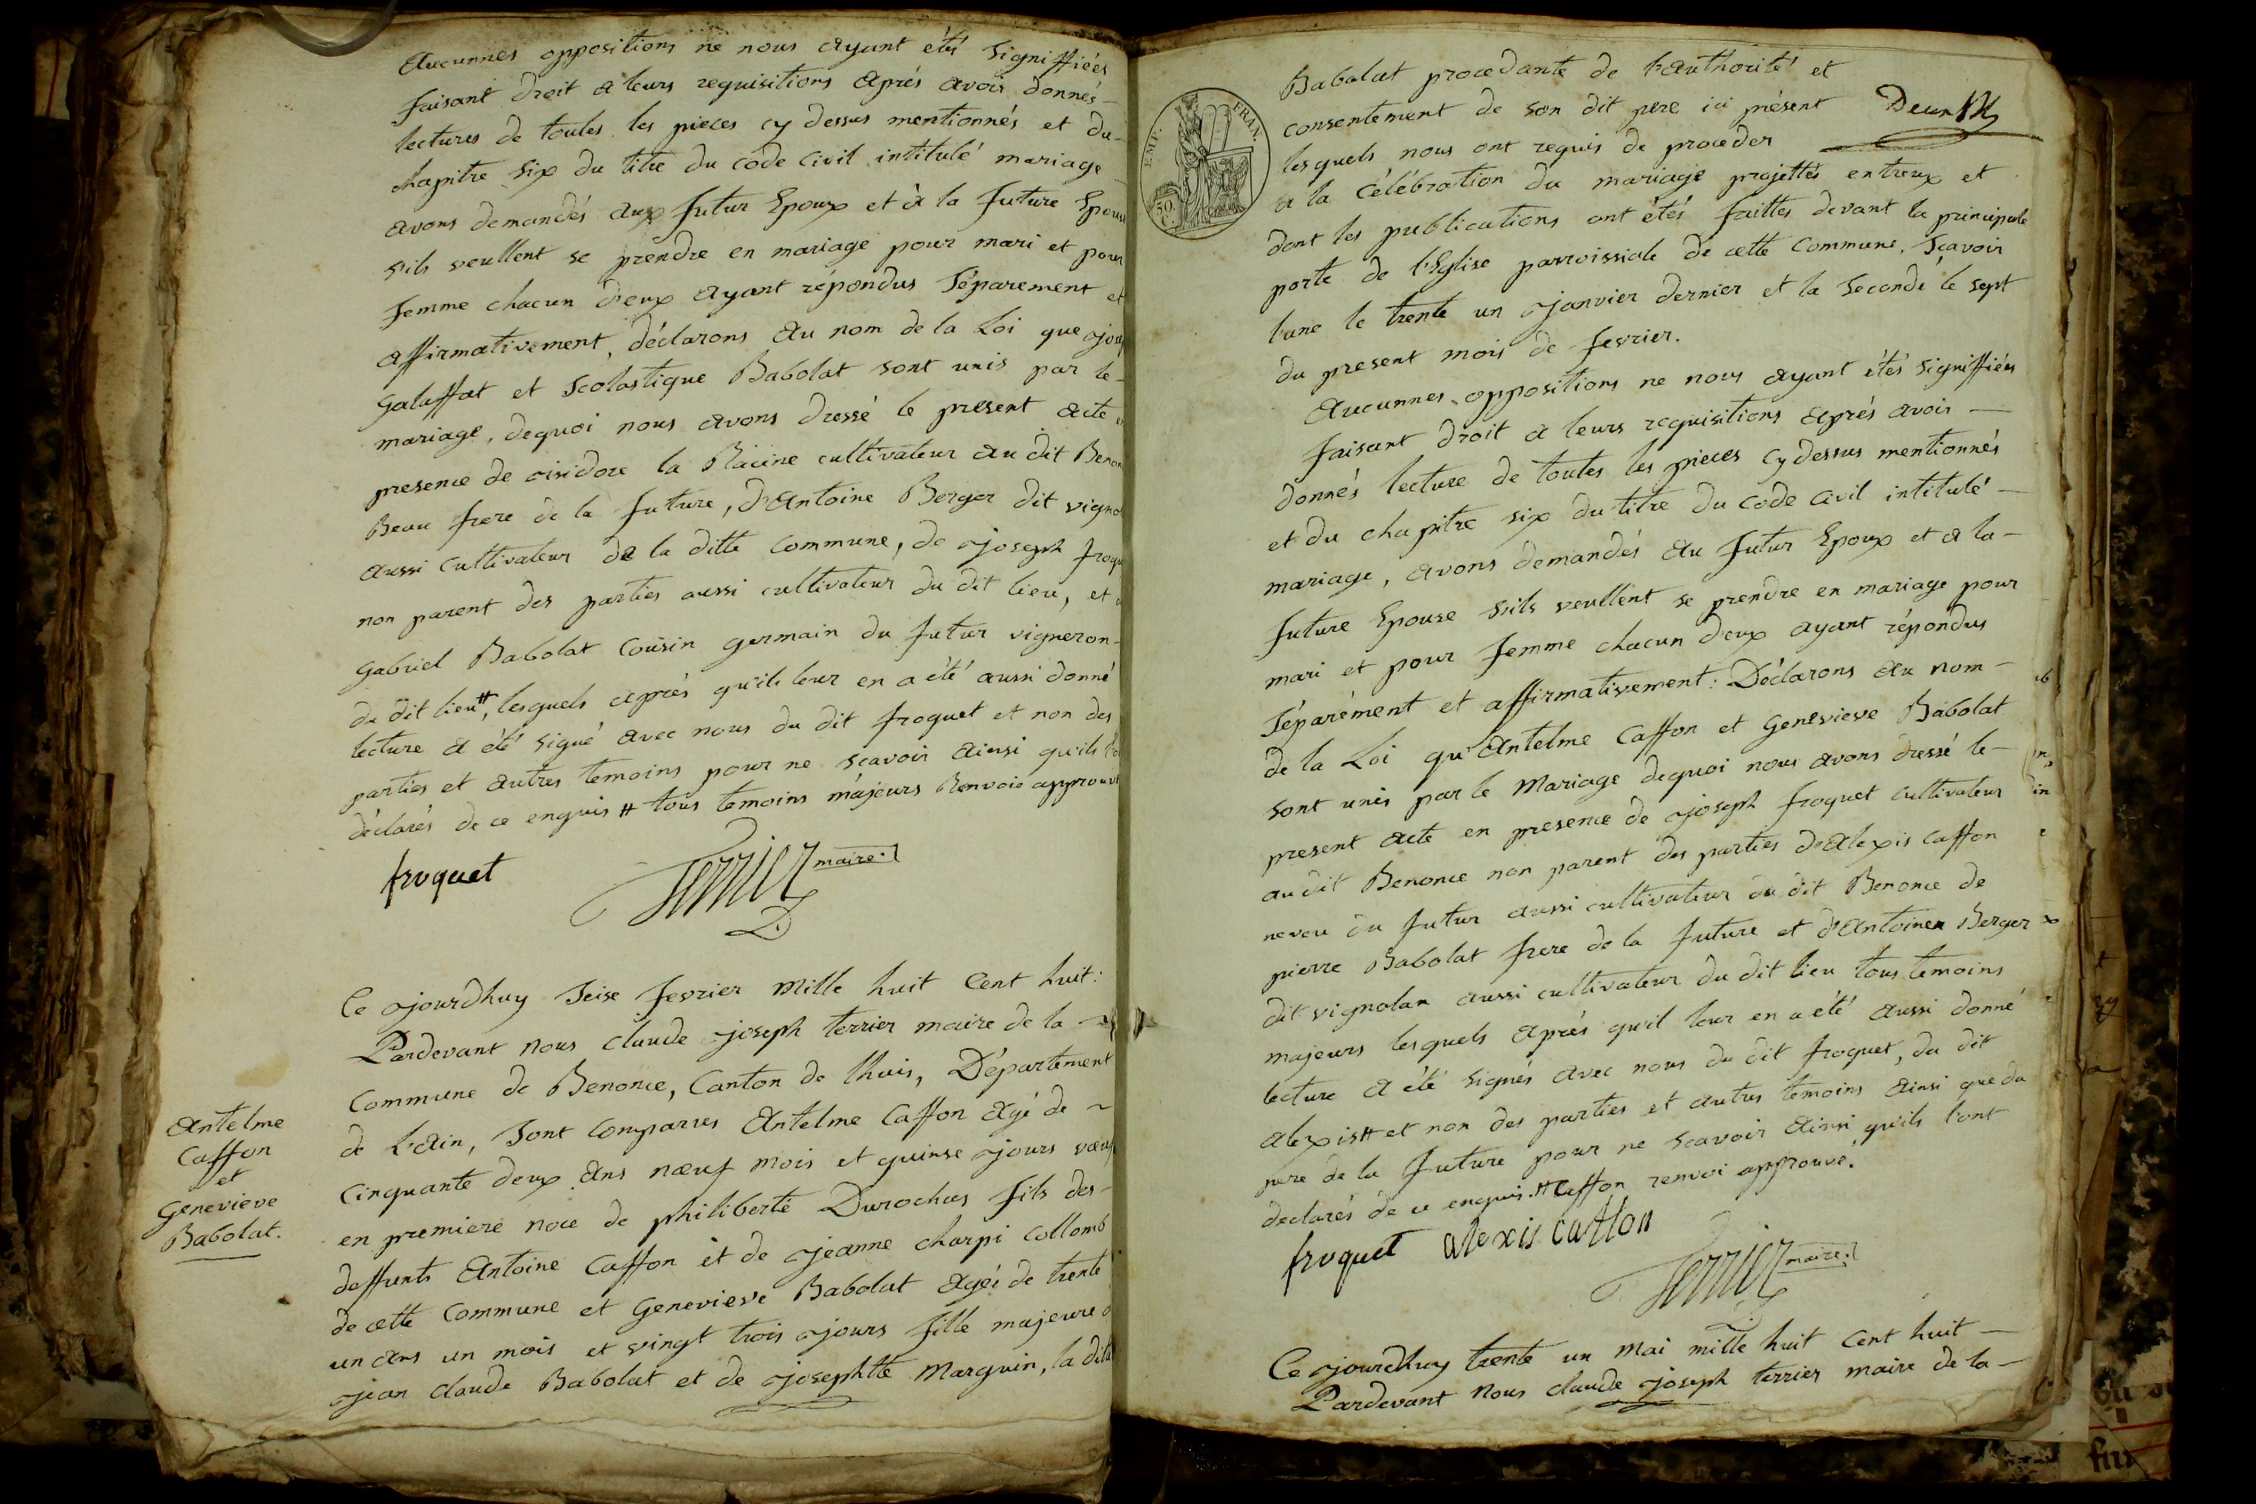 Aucunnes oppositions ne nous ayant étés signiffiées
faisant droit a leurs requisitions aprés avoir donnés
lectures de toutes les pieces cy dessus mentionnés et du
chapitre six du titre du code civil intitulé mariage
avons demandés aux futur Epoux et à la future Epouse
s'ils veullent se prendre en mariage pour mari et pour
femme chacun d'eux ayant répondus séparement et
affirmativement, déclarons au nom de la Loi que
Galaffat et Scolastique Babolat sont unis par le
mariage, dequoi nous avons dressé le present acte en
presence de isidore la Racine cultivateur au dit
Beau frere de la future, d'Antoine Berger dit
aussi cultivateur de la ditte commune, de joseph
non parent des parties aussi cultivateur du dit lieu, et
gabriel Babolat cousin germain du futur vigneron
du dit lieu #, lesquels aprés qu'ils leur en a été aussi donné
lecture a été signé avec nous du dit froquet et non des
parties et autres temoins pour ne scavoir ainsi qu'ils
déclarés de ce enquis # tous temoins majeurs Renvoie approuvé
froquet
Terrier maire
Antelme
Caffon
et
Genevieve
Babolat.
Ce ajourdhuy seise fevrier mille huit cent huit:
Pardevant nous claude joseph terrier maire de la
commune de Benonce, Canton de lhuis, Département
de L'ain, sont comparus Antelme Caffon agé de
cinquante deux ans nœuf mois et quinse jours vœuf
en premiere noce de philiberte Durochas fils des
deffunts Antoine Caffon et de jeanne charpi collomb
de cette commune et Genevieve Babolat agée de trente
un ans un mois et vingt trois jours fille majeure
jean claude Babolat et de josephtte Marguin, la ditte
EMP. FRAN.
50. C.
Babolat procedante de l'authorité et
consentement de son dit pere ici présent
lesquels nous ont requis de proceder
a la célébration du mariage projettés entreux et
dont les publications ont étés faittes devant la principale
porte de l'Eglise parroissiale de cette commune, scavoir
l'une le trente un janvier dernier et la seconde le sept
du present mois de fevrier.
Aucunnes oppositions ne nous ayant étés signiffiées
faisant droit a leurs requisitions aprés avoir
donnés lecture de toutes les pieces cy dessus mentionnés
et du chapitre six du titre du code civil intitulé
mariage, avons demandés au futur Epoux et a la
future Epouse s'ils veullent se prendre en mariage pour
mari et pour femme chacun d'eux ayant répondus
séparément et affirmativement: Déclarons au nom
de la Loi qu'Antelme Caffon et Genevieve Babolat
sont unis par le Mariage dequoi nous avons dressé le
present acte en presence de joseph froquet cultivateur
au dit Benonce non parent des parties d'alexis Caffon
neveu du futur aussi cultivateur du dit Benonce de
pierre Babolat frere de la future et d'Antoine Berger
dit vignolan aussi cultivateur du dit lieu tous temoins
majeurs lesquels aprés qu'il leur en a été aussi donné
lecture a été signés avec nous du dit froquet, du dit
alexis # et non des parties et autres temoins ainsi que du
pere de la future pour ne scavoir ainsi qu'ils l'ont
declarés de ce enquis. # Caffon renvoi approuvé.
froquet alexis caffon
Terrier maire
Ce ajourdhuy trente un mai mille huit cent huit
Pardevant nous claude joseph terrier maire de la